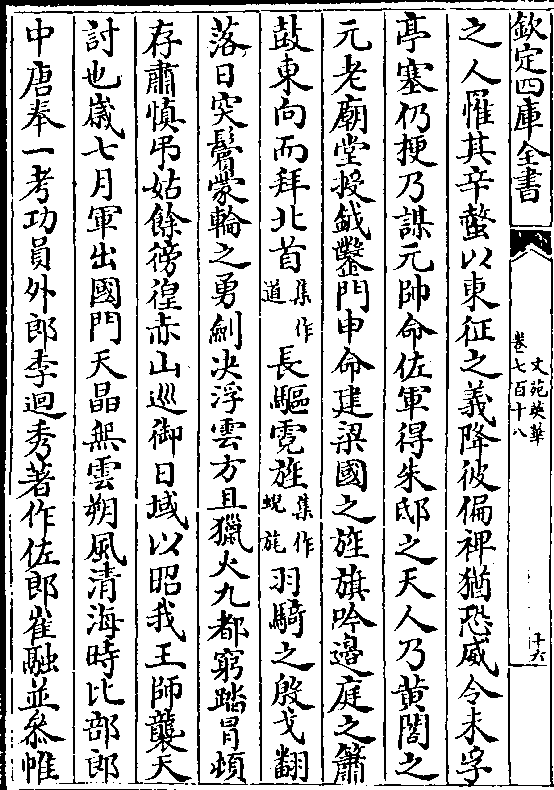 欽定四庫全書
文苑英華
卷七百十八
十六
之人罹其辛螫以東征之義降彼偏裨猶恐威令未孚
亭塞仍梗乃謀元帥命佐軍得朱邸之天人乃黄閤之
元老廟堂授鉞鑿門申命建梁國之旌旗吟邊庭之簫
鼓東向而拜北首集作道長驅霓旌集作蜺旄羽騎之殷戈翻
落日突鬢蒙輪之勇劍决浮雲方且獵火九都窮踏冐頓
存肅慎弔姑餘徬徨赤山巡御日域以昭我王師襲天
討也歳七月軍出國門天晶無雲朔風清海時比部郎
中唐奉一考功員外郎李迥秀著作佐郎崔融並叅帷